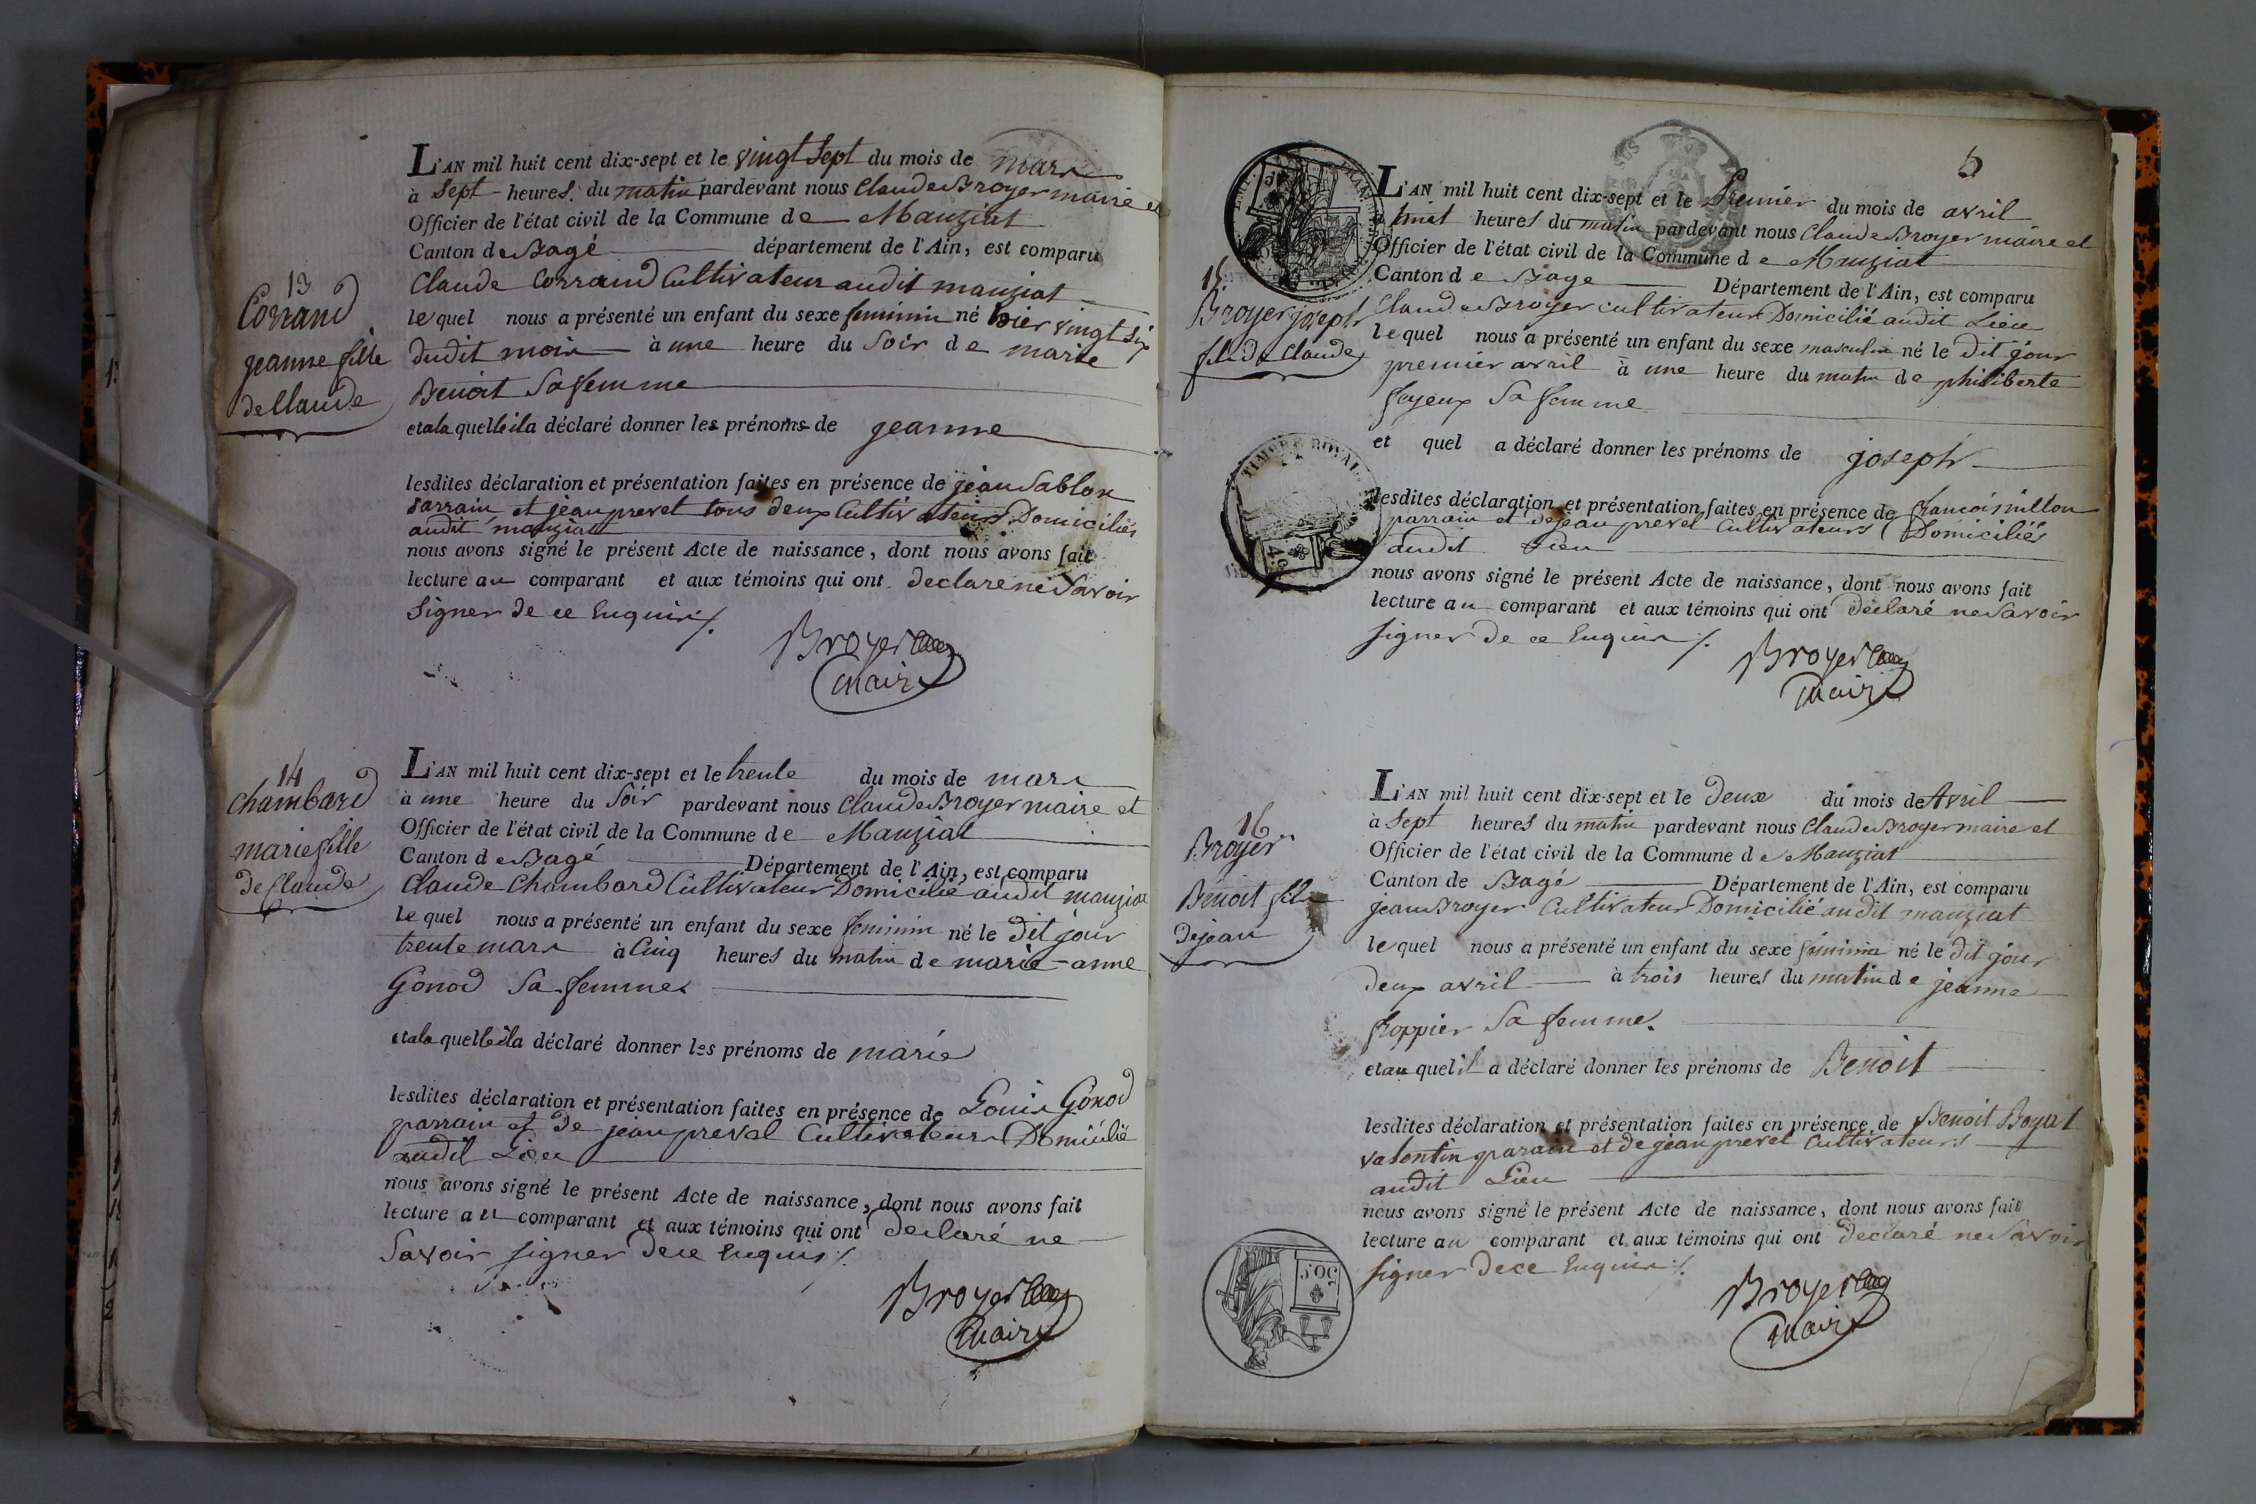 L'AN mil huit cent dix-sept et le vingt sept du mois de mars
à sept heures du matin pardevant nous Claude Broyer maire et
Officier de l'état civil de la Commune de Manziat
Canton de Bagé département de l'Ain, est comparu
Claude Corrand Cultivateur audit manziat
lequel nous a présenté un enfant du sexe feminin né hier vingt six
dudit mois à une heure du Soir de marie
Benoit Sa femme
et a la quelle il a déclaré donner les prénoms de jeanne
lesdites déclaration et présentation faites en présence de jean Sablon
parrain et jean prevel tous deux Cultivateurs Domiciliés
audit manziat
nous avons signé le présent Acte de naissance, dont nous avons fait
lecture au comparant et aux témoins qui ont declaré ne Savoir
Signer de ce Enquis ⁒
Broyer
maire
13
Corrand
jeanne fille
de Claude
L'AN mil huit cent dix-sept et le trente du mois de mars
à une heure du Soir pardevant nous Claude Broyer maire et
Officier de l'état civil de la Commune de Manziat
Canton de Bagé Département de l'Ain, est comparu
Claude Chambard Cultivateur Domicilié audit manziat
lequel nous a présenté un enfant du sexe feminin né le dit jour
trente mars à Cinq heures du matin de marie-anne
Gonod Sa femme
et a la quelle il a déclaré donner les prénoms de marie
lesdites déclaration et présentation faites en présence de Louis Gonod
parrain et de jean preval Cultivateurs Domicilié
audit Lieu
nous avons signé le présent Acte de naissance, dont nous avons fait
lecture au comparant et aux témoins qui ont declaré ne
Savoir signer de ce Enquis ⁒
Broyer
maire
14
chambard
marie fille
de Claude
5
L'AN mil huit cent dix-sept et le Premier du mois de avril
à huit heures du matin pardevant nous Claude Broyer maire et
Officier de l'état civil de la Commune de Manziat
Canton de Bage Département de l'Ain, est comparu
Claude Broyer cultivateur Domicilié audit Lieu
lequel nous a présenté un enfant du sexe masculin né le dit jour
premier avril à une heure du matin de philiberte
feyeux Sa femme
et quel a déclaré donner les prénoms de joseph
lesdites déclaration et présentation faites en présence de francois millon
parrain et de jean prevel Cultivateurs Domiciliés
audit Lieu
nous avons signé le présent Acte de naissance, dont nous avons fait
lecture au comparant et aux témoins qui ont déclaré ne Savoir
signer de ce Enquis ⁒
Broyer
maire
15
Broyer joseph
fils de Claude
TIMBRE ROYAL
L'AN mil huit cent dix-sept et le deux du mois de Avril
à Sept heures du matin pardevant nous Claude Broyer maire et
Officier de l'état civil de la Commune de Manziat
Canton de Bagé Département de l'Ain, est comparu
jean Broyer Cultivateur Domicilié audit manziat
lequel nous a présenté un enfant du sexe féminin né le dit jour
deux avril à trois heures du matin de jeanne
froppier Sa femme
et au quel il a déclaré donner les prénoms de Benoit
lesdites déclaration et présentation faites en présence de Benoit Boyat
valentin parain et de jean prevel Cultivateurs
audit Lieu
nous avons signé le présent Acte de naissance, dont nous avons fait
lecture au comparant et aux témoins qui ont declaré ne Savoir
signer de ce Enquis ⁒
Broyer
maire
16
Broyer
Benoit fils
de jean
50.C